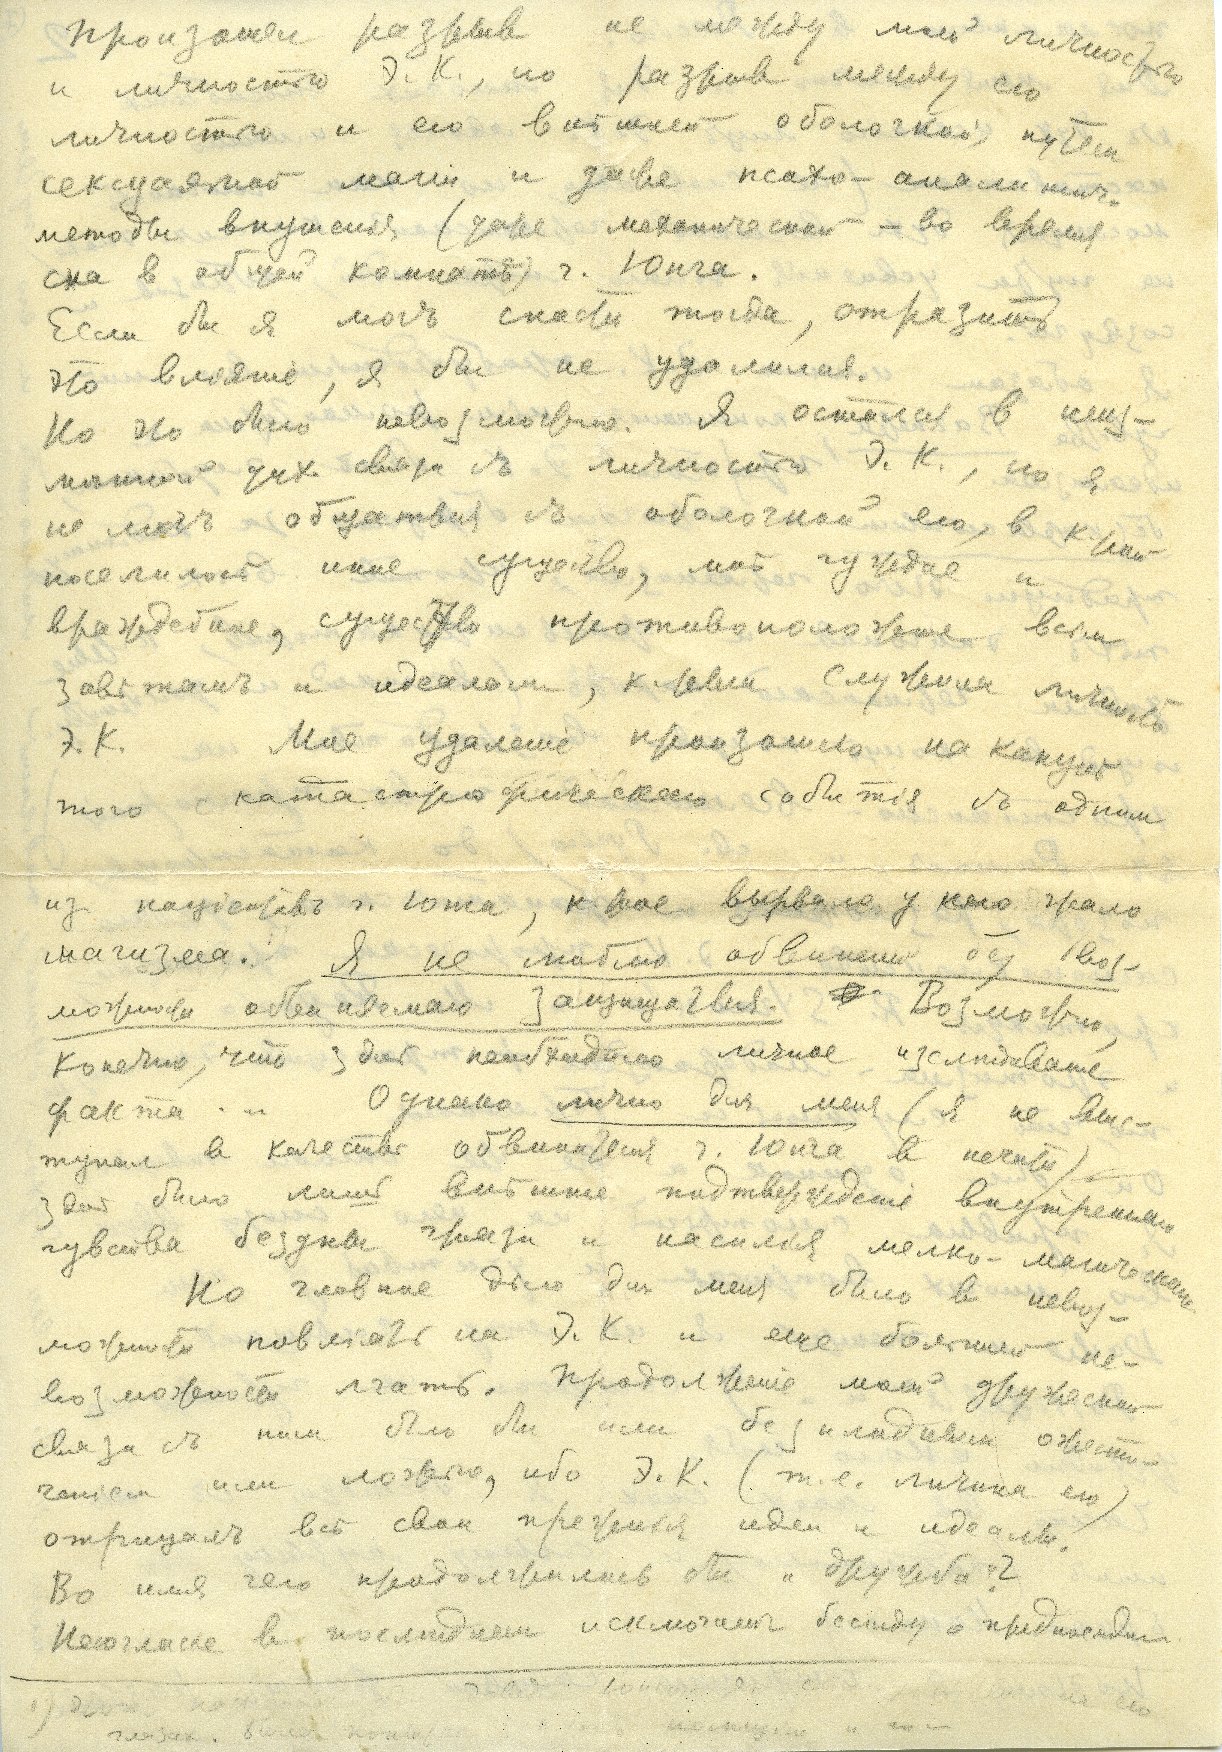 Произошел разрыв не между моей личностью
и личностью Э.К., но разрыв между его
личностью и его внѣшней оболочкой, путем
сексуальной магiи и даже психо-аналитич.
методы внушенiя (даже механической - во время
сна в общей комнатѣ) г. Юнга.
Если бы я могъ спасти тогда, отразить
это влiянiе, я бы не удалился.
Но это было невозможно. Я остался в неиз-
мѣнной дух. связи съ личностью Э.К., но я
не могъ общаться съ оболочкой его, в к-рой
поселилось иное существо, мнѣ чуждое и
враждебное, существо противоположное всѣм
завѣтамъ и идеалам, к-рым служила личность
Э.К. Мое удаленiе произошло на канунѣ
того катастрофическаго событiя съ одним
из пацiентовъ г. Юнга, к-рое вырвало у него жало
магизма. Я не люблю обвинений без воз-
можности обвиняемаго защищаться. Возможно,
конечно, что здѣсь необходимо личное изслѣдованiе
факта. Однако лично для меня (я не выс-
тупал в качествѣ обвинителя г. Юнга в печати)
здѣсь было лишь внѣшнее подтвержденiе внутренняго
чувства бездны грязи и насилiя мелко-магическаго.
Но главное дѣло для меня было в невоз-
можности повлiять на Э.К. и еще большей не-
возможности лгать. Продолженiе моей дружеской
связи съ ним было бы или безплодным ожесто-
ченiем или ложью, ибо Э.К. (т.е. личина его)
отрицалъ всѣ свои прежнiя идеи и идеалы.
Во имя чего продолжилась бы "дружба"?
Несогласие в послѣднем исключает бесѣду о предпослѣднем
1)